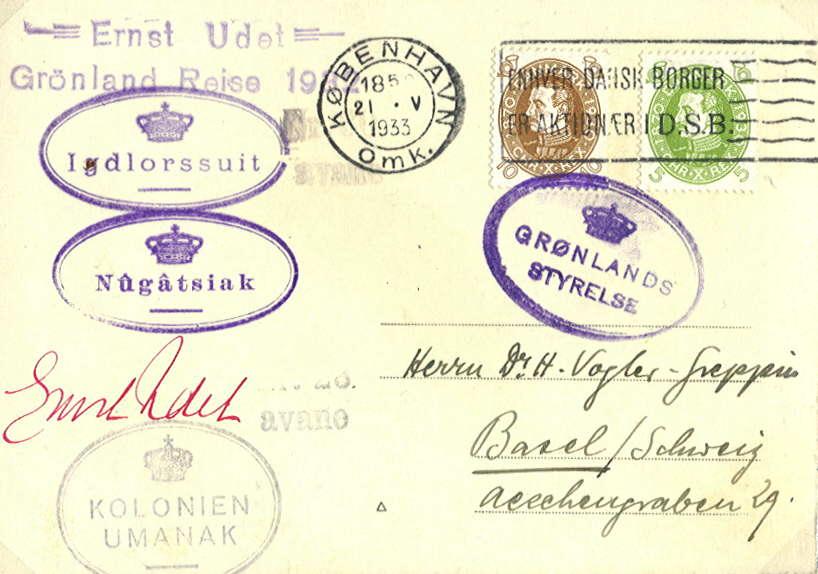 Ernst Udet
Grönland Reise 1932
Igdlorssuit
Nûgâtsiak
Ernst Udet
avane
KOLONIEN
UMANAK
KØBENHAVN
1850
21 · V
1933
Omk.
ENHVER DANSK BORGER
ER AKTIONÆR I D.S.B.
10 10
CHR·X·REX
5 5
CHR·X·REX
GRØNLANDS
STYRELSE
Herrn Dr. H. Vogler-Greppin
Basel / Schweiz
Aeschengraben 29.